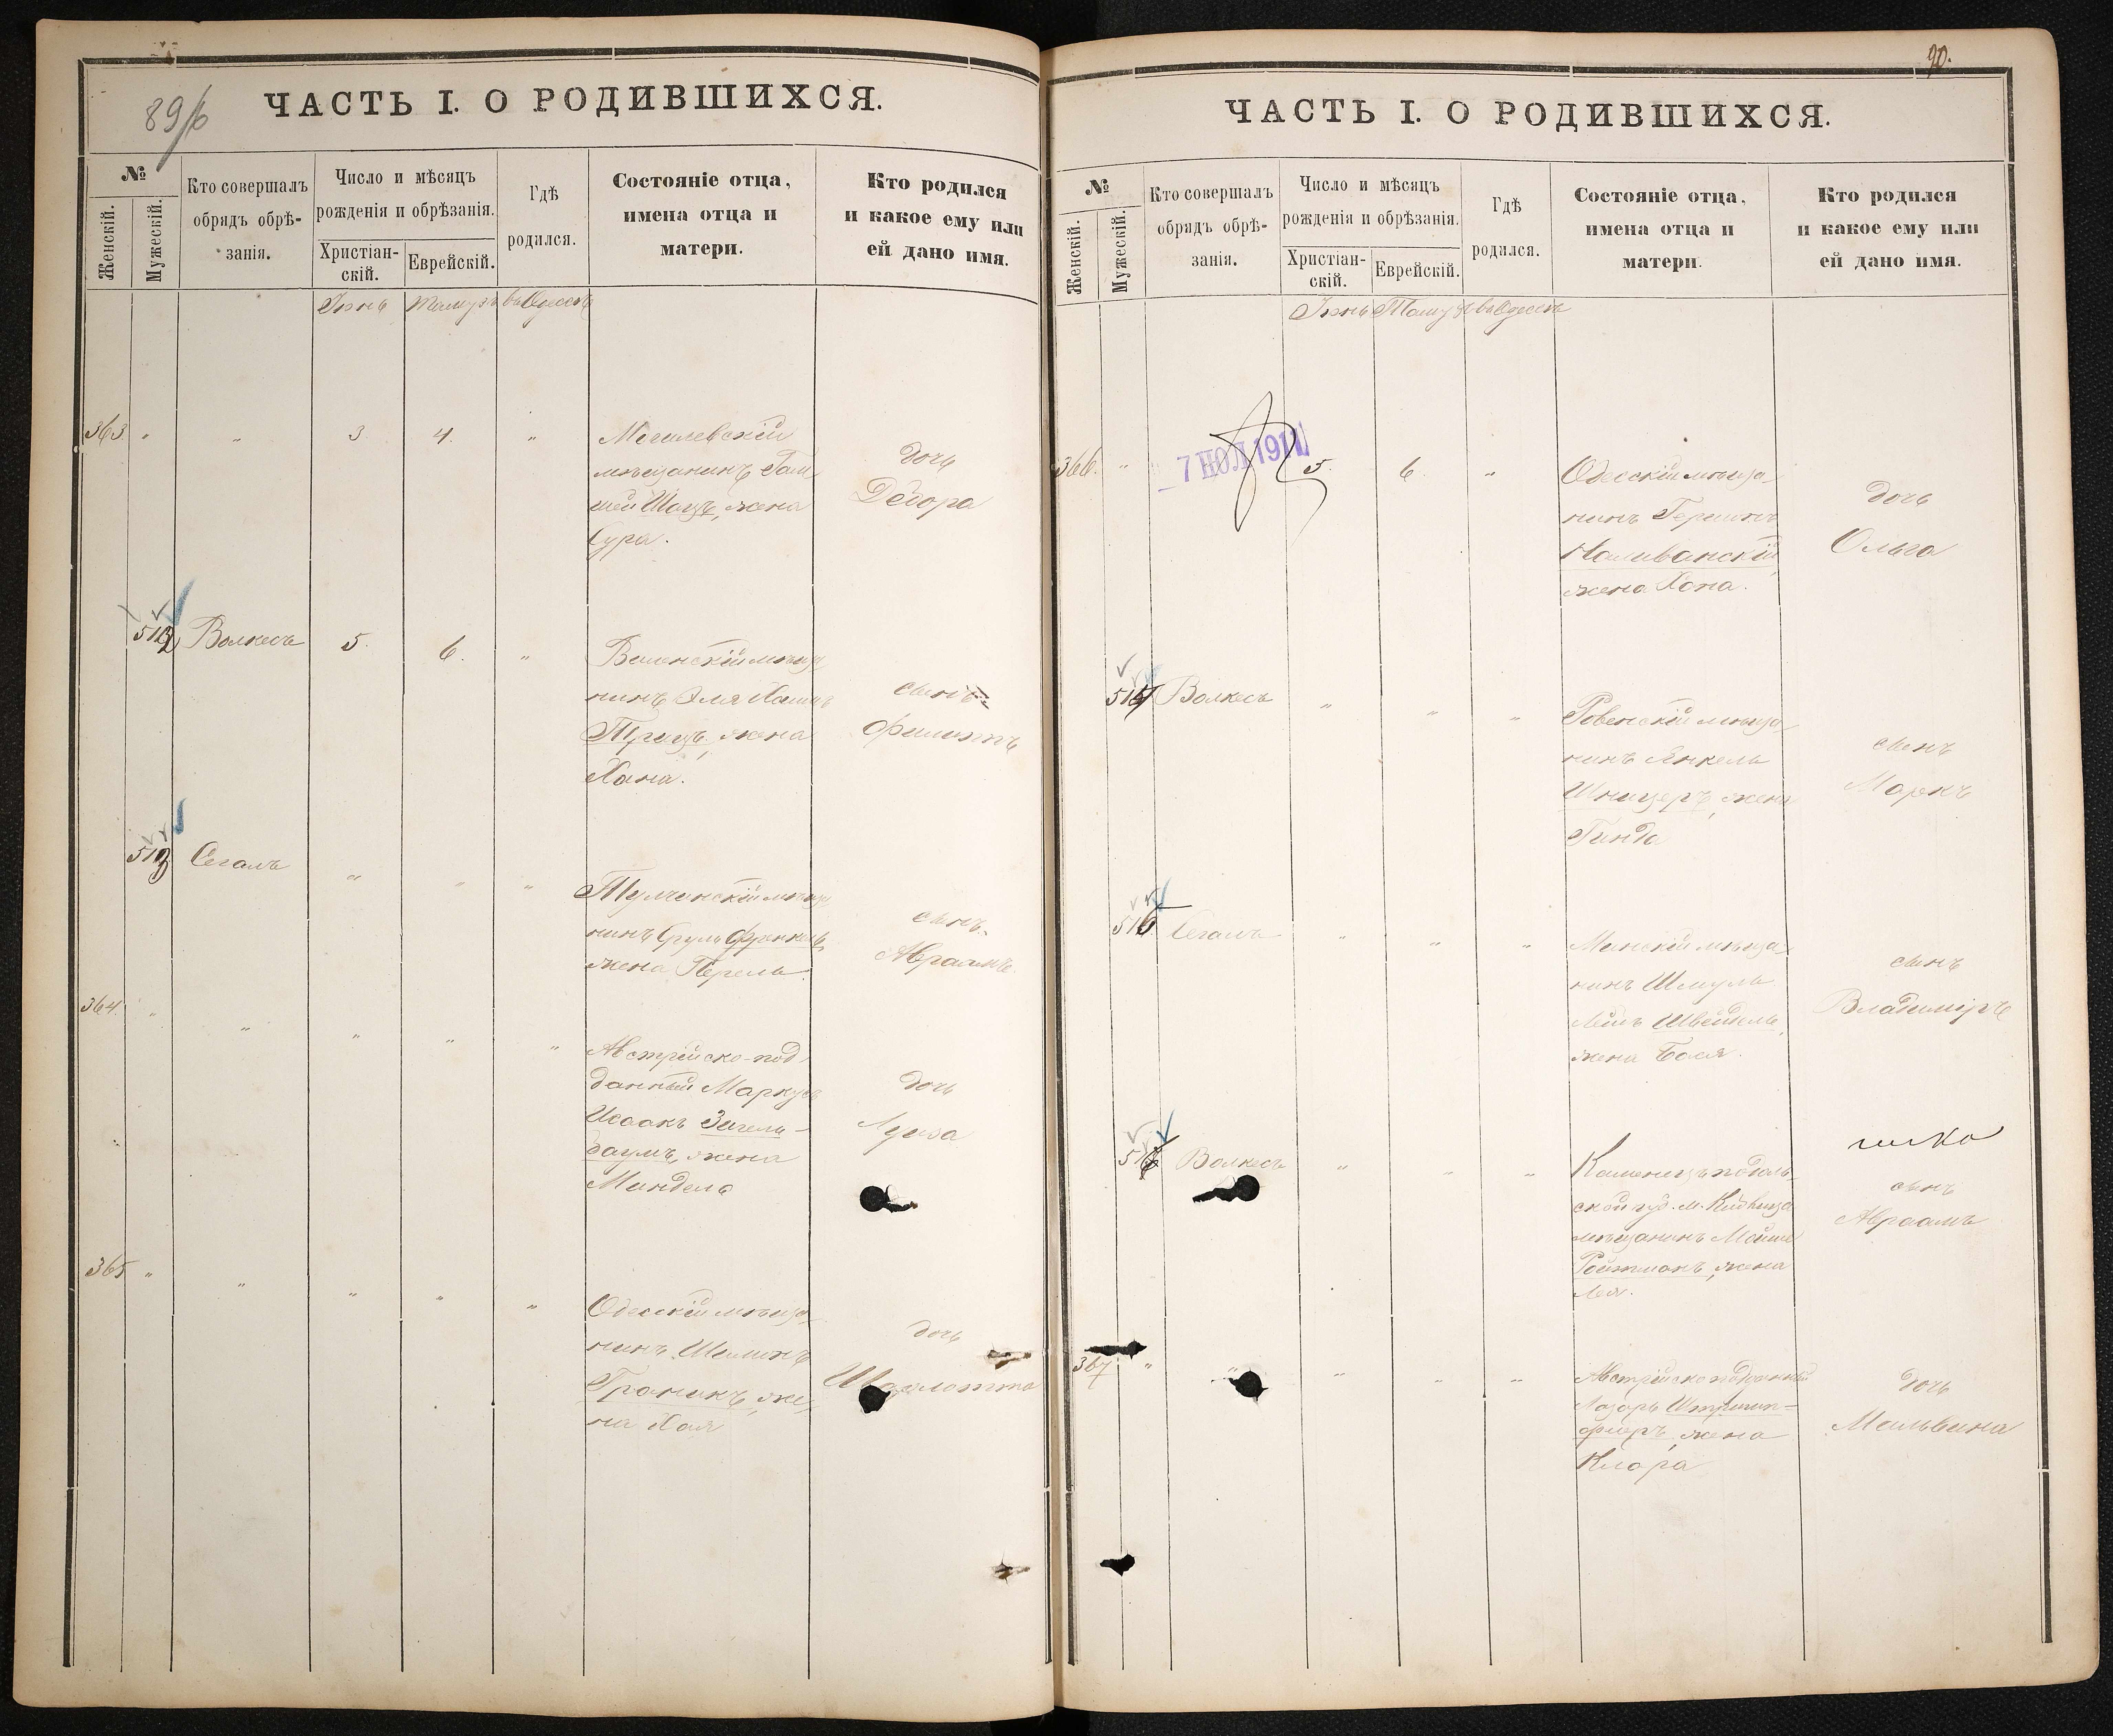 89/б
ЧАСТЬ I. О РОДИВШИХСЯ.
№
Женскій.
Мужескій.
Кто совершалъ
обрядъ обрѣ-
занія.
Число и мѣсяцъ
рожденія и обрѣзанія.
Христіан-
скій.
Еврейскій.
Гдѣ
родился.
Состояніе отца,
имена отца и
матери.
Кто родился
и какое ему или
ей дано имя.
Іюнь Тамузъ въ Одессѣ
363. " " 3 4. "
Могилевскій
мѣщанинъ
жена
Сура.
дочь
Дебора
512 Волкесъ 5. 6. "
Виленскій мѣща
нинъ Эля Хаимъ
жена
Хана.
сынъ
Филиппъ
513 Сегалъ " " "
Тульчинскій мѣща
нинъ Сруль Френкель,
жена Перель.
сынъ
Авраамъ.
364. " " " " "
Австрійско-под
данный Маркусъ
Исаакъ Зигель-
баумъ, жена
Миндель
дочь
Луиза
365 " " " " "
Одесскій мѣща
нинъ
Граникъ, же-
на Хая
дочь
Шарлотта
90.
ЧАСТЬ I. О РОДИВШИХСЯ.
№
Женскій.
Мужескій.
Кто совершалъ
обрядъ обрѣ-
занія.
Число и мѣсяцъ
рожденія и обрѣзанія.
Христіан-
скій.
Еврейскій.
Гдѣ
родился.
Состояніе отца,
имена отца и
матери.
Кто родился
и какое ему или
ей дано имя.
Іюнь Тамузъ въ Одессѣ
366. " 7 ІЮЛ 1911 5. 6. "
Одесскій мѣща-
нинъ Гершонъ
Наливанскій,
жена Хона.
дочь
Ольга
514 Волкесъ " " "
Ровенскій мѣща-
нинъ Янкель
Шницеръ, жена
Гинда
сынъ
Маркъ
515 Сегалъ " " "
Минскій мѣща-
нинъ Шмуль
Лейбъ Швейдель,
жена Бася.
сынъ
Владиміръ
516 Волкесъ " " "
Каменецъ подоль-
ской губ. м.
мѣщанинъ Мойше
Ройтманъ, жена
Лея.
сынъ
Авраамъ
367 " " " " "
Австрійско подданный
Лазарь
жена
Клара
дочь
Мальвина